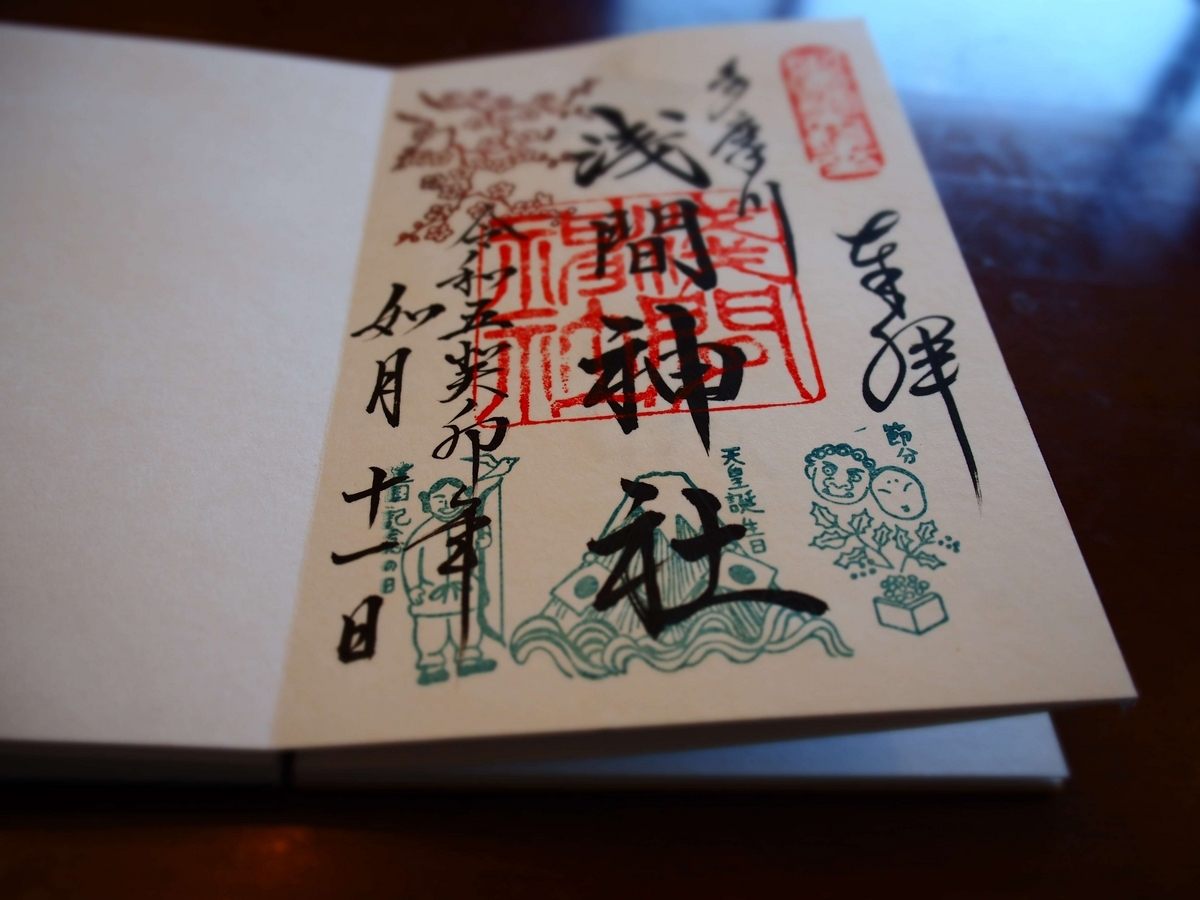 奉拝
多摩川
浅間神社
令和五癸卯年
如月十一日
節分
天皇誕生日
建国記念の日
浅間神社